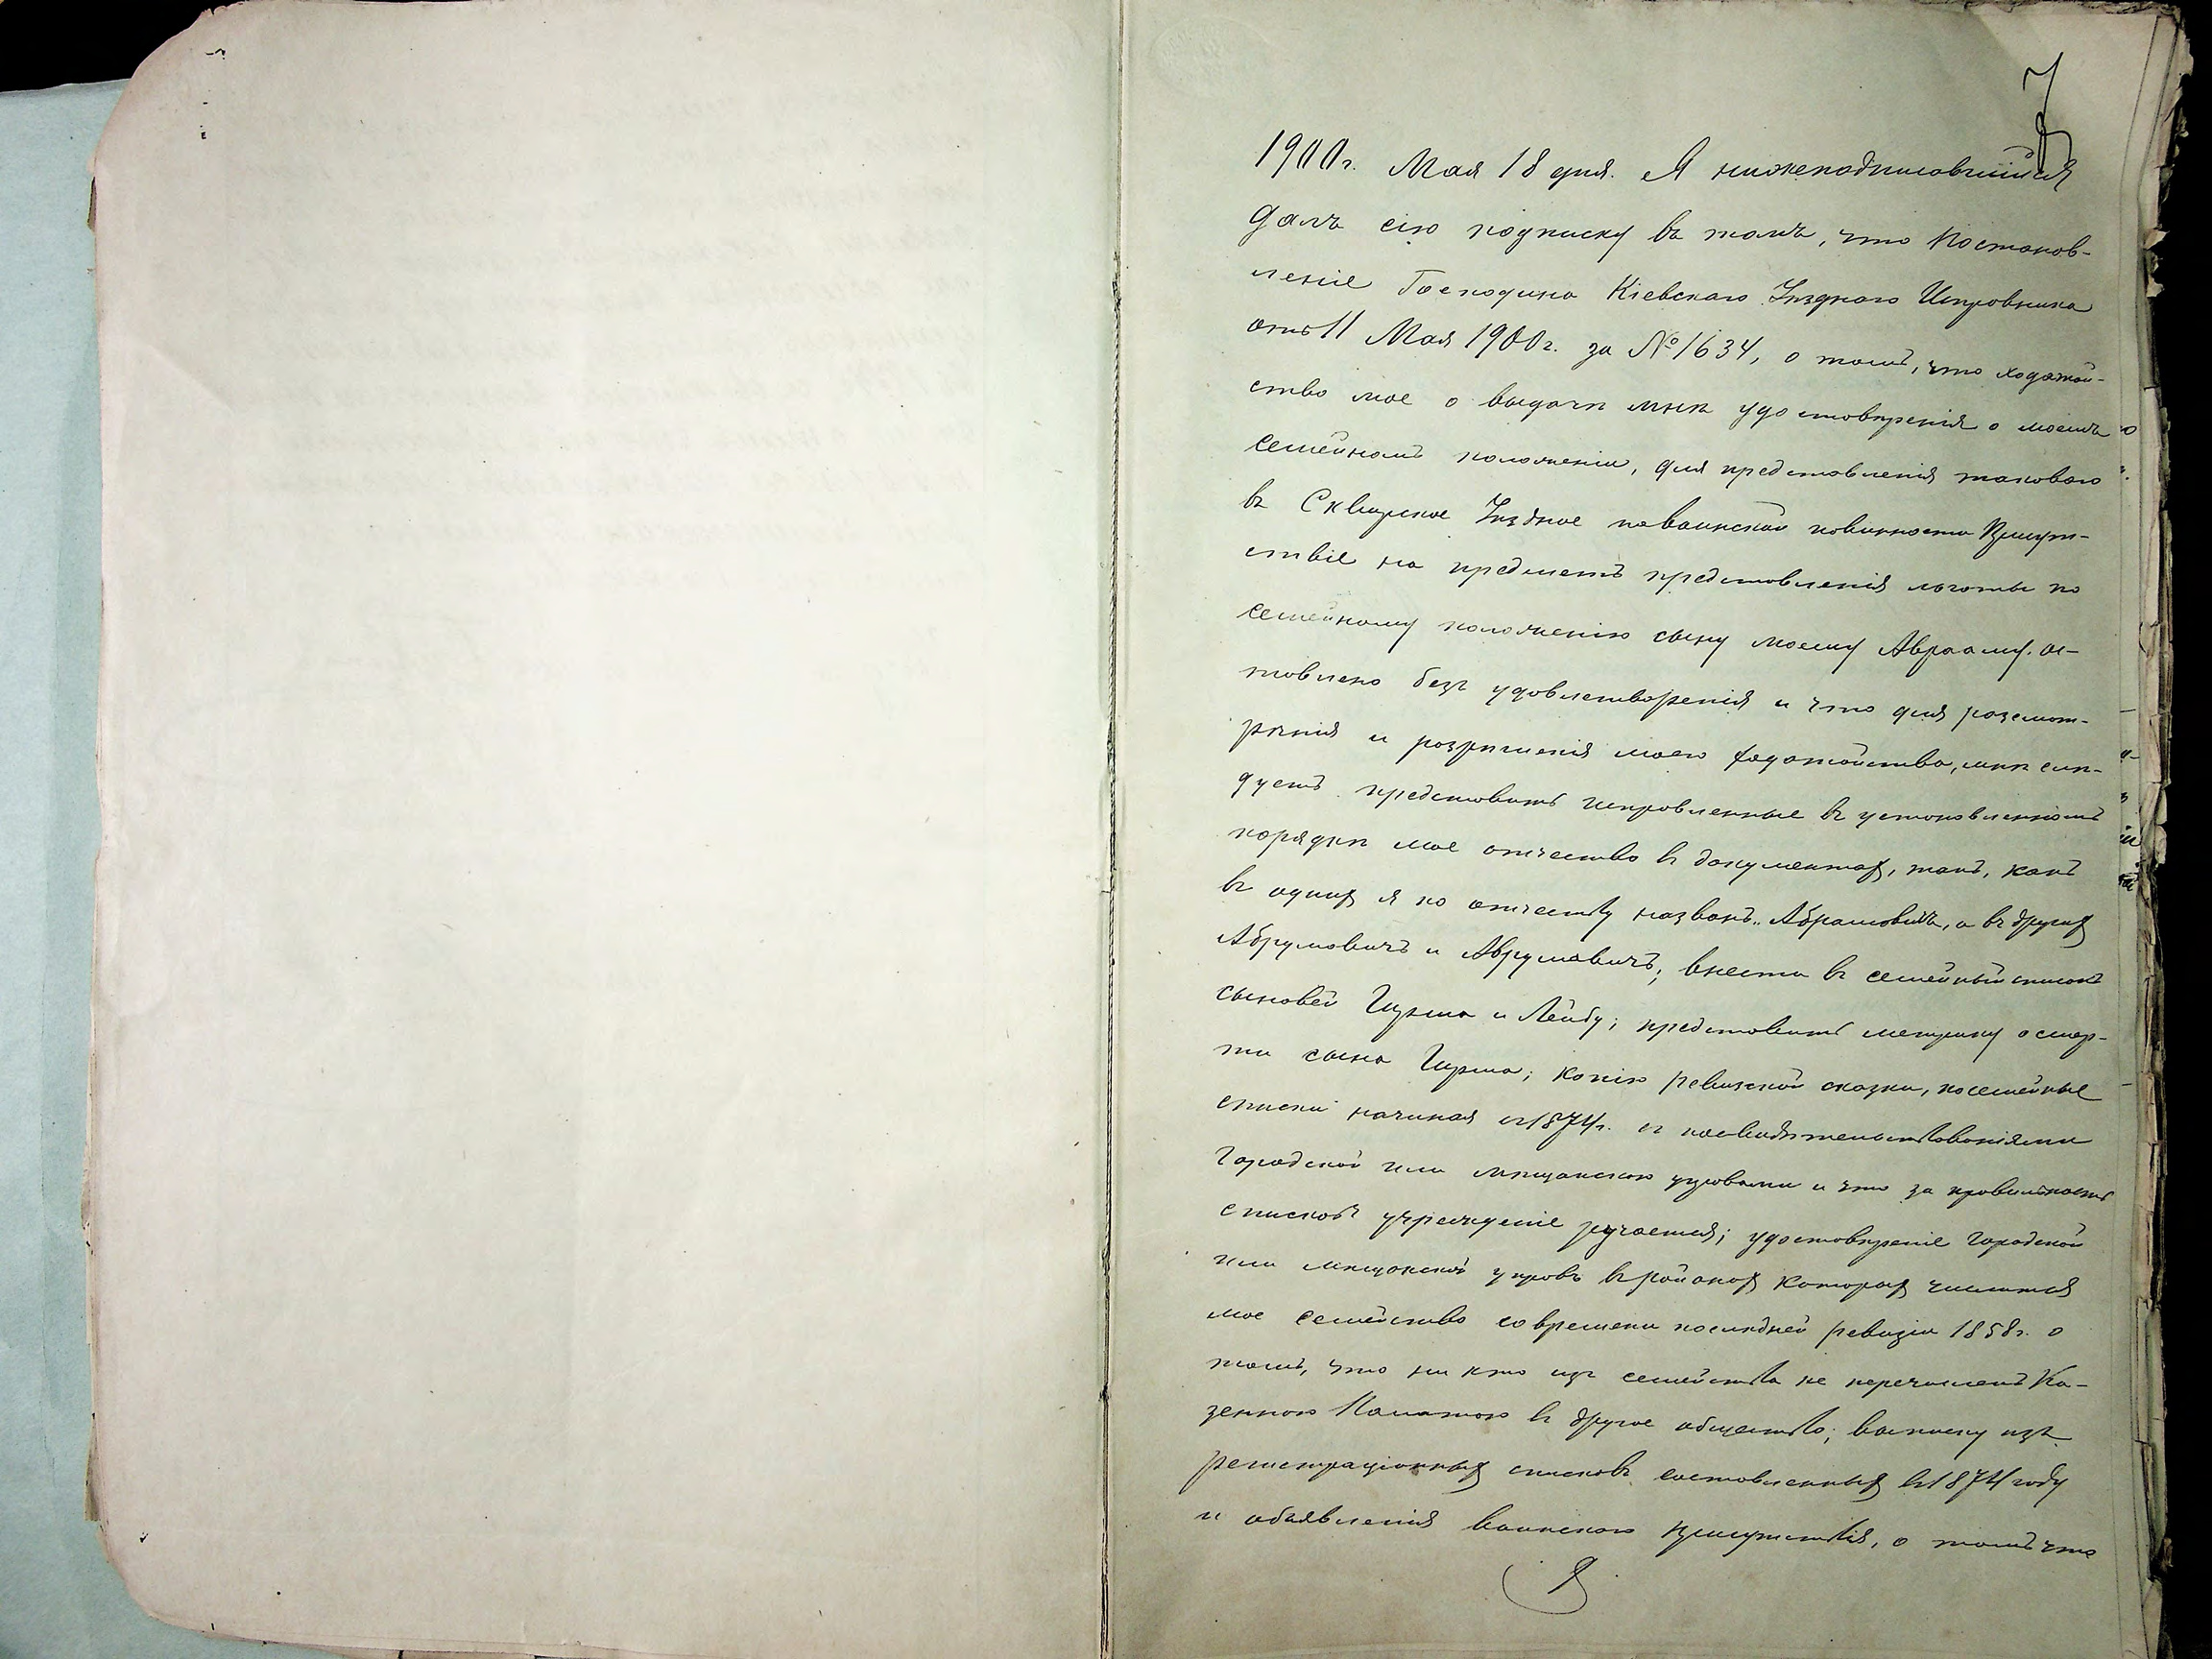 7
1900г. Мая 18 дня. Я нижеподписавшійся
далъ сію подписку въ томъ, что Постанов-
леніе Господина Кіевскаго Уѣзднаго Исправника
отъ 11 Мая 1900г. за № 1634, о томъ, что ходатай-
ство мое о выдачѣ мнѣ удостовѣренія о моемъ
семейномъ положеніи, для представленія таковаго
въ Сквирское Уѣздное по воинской повинности Присут-
ствіе на предметъ представленія льготы по
семейному положенію сыну моему Аврааму. ос-
тавлено безъ удовлетворенія и что для разсмот-
рѣнія и разрѣшенія моего ходатайства, мнѣ слѣ-
дуетъ представить исправленные въ установленномъ
порядкѣ мое отчество въ документах, такъ, какъ
въ одних я по отчеству названъ „Абрамовичъ, а въ других
Абрумовичъ и Аврумовичъ; внести въ семейный списокъ
сыновей Гирша и Лейбу; представить метрику о смер-
ти сына Гирша; копію ревизской сказки, посемейные
списки начиная съ 1874г. съ засвидѣтельствованіями
Городской или мѣщанскою управами и что за правильность
списковъ учрежденіе ручается; удостовѣреніе Городской
или мѣщанской управъ въ районах которых числится
мое семейство со времени послѣдней ревизіи 1858г. о
томъ, что ни кто изъ семейства не перечисленъ Ка-
зенною Палатою въ другое общество; выписку изъ
регистраціонных списковъ составленных въ 1874 году
и объявленія воинскаго присутствія, о томъ что